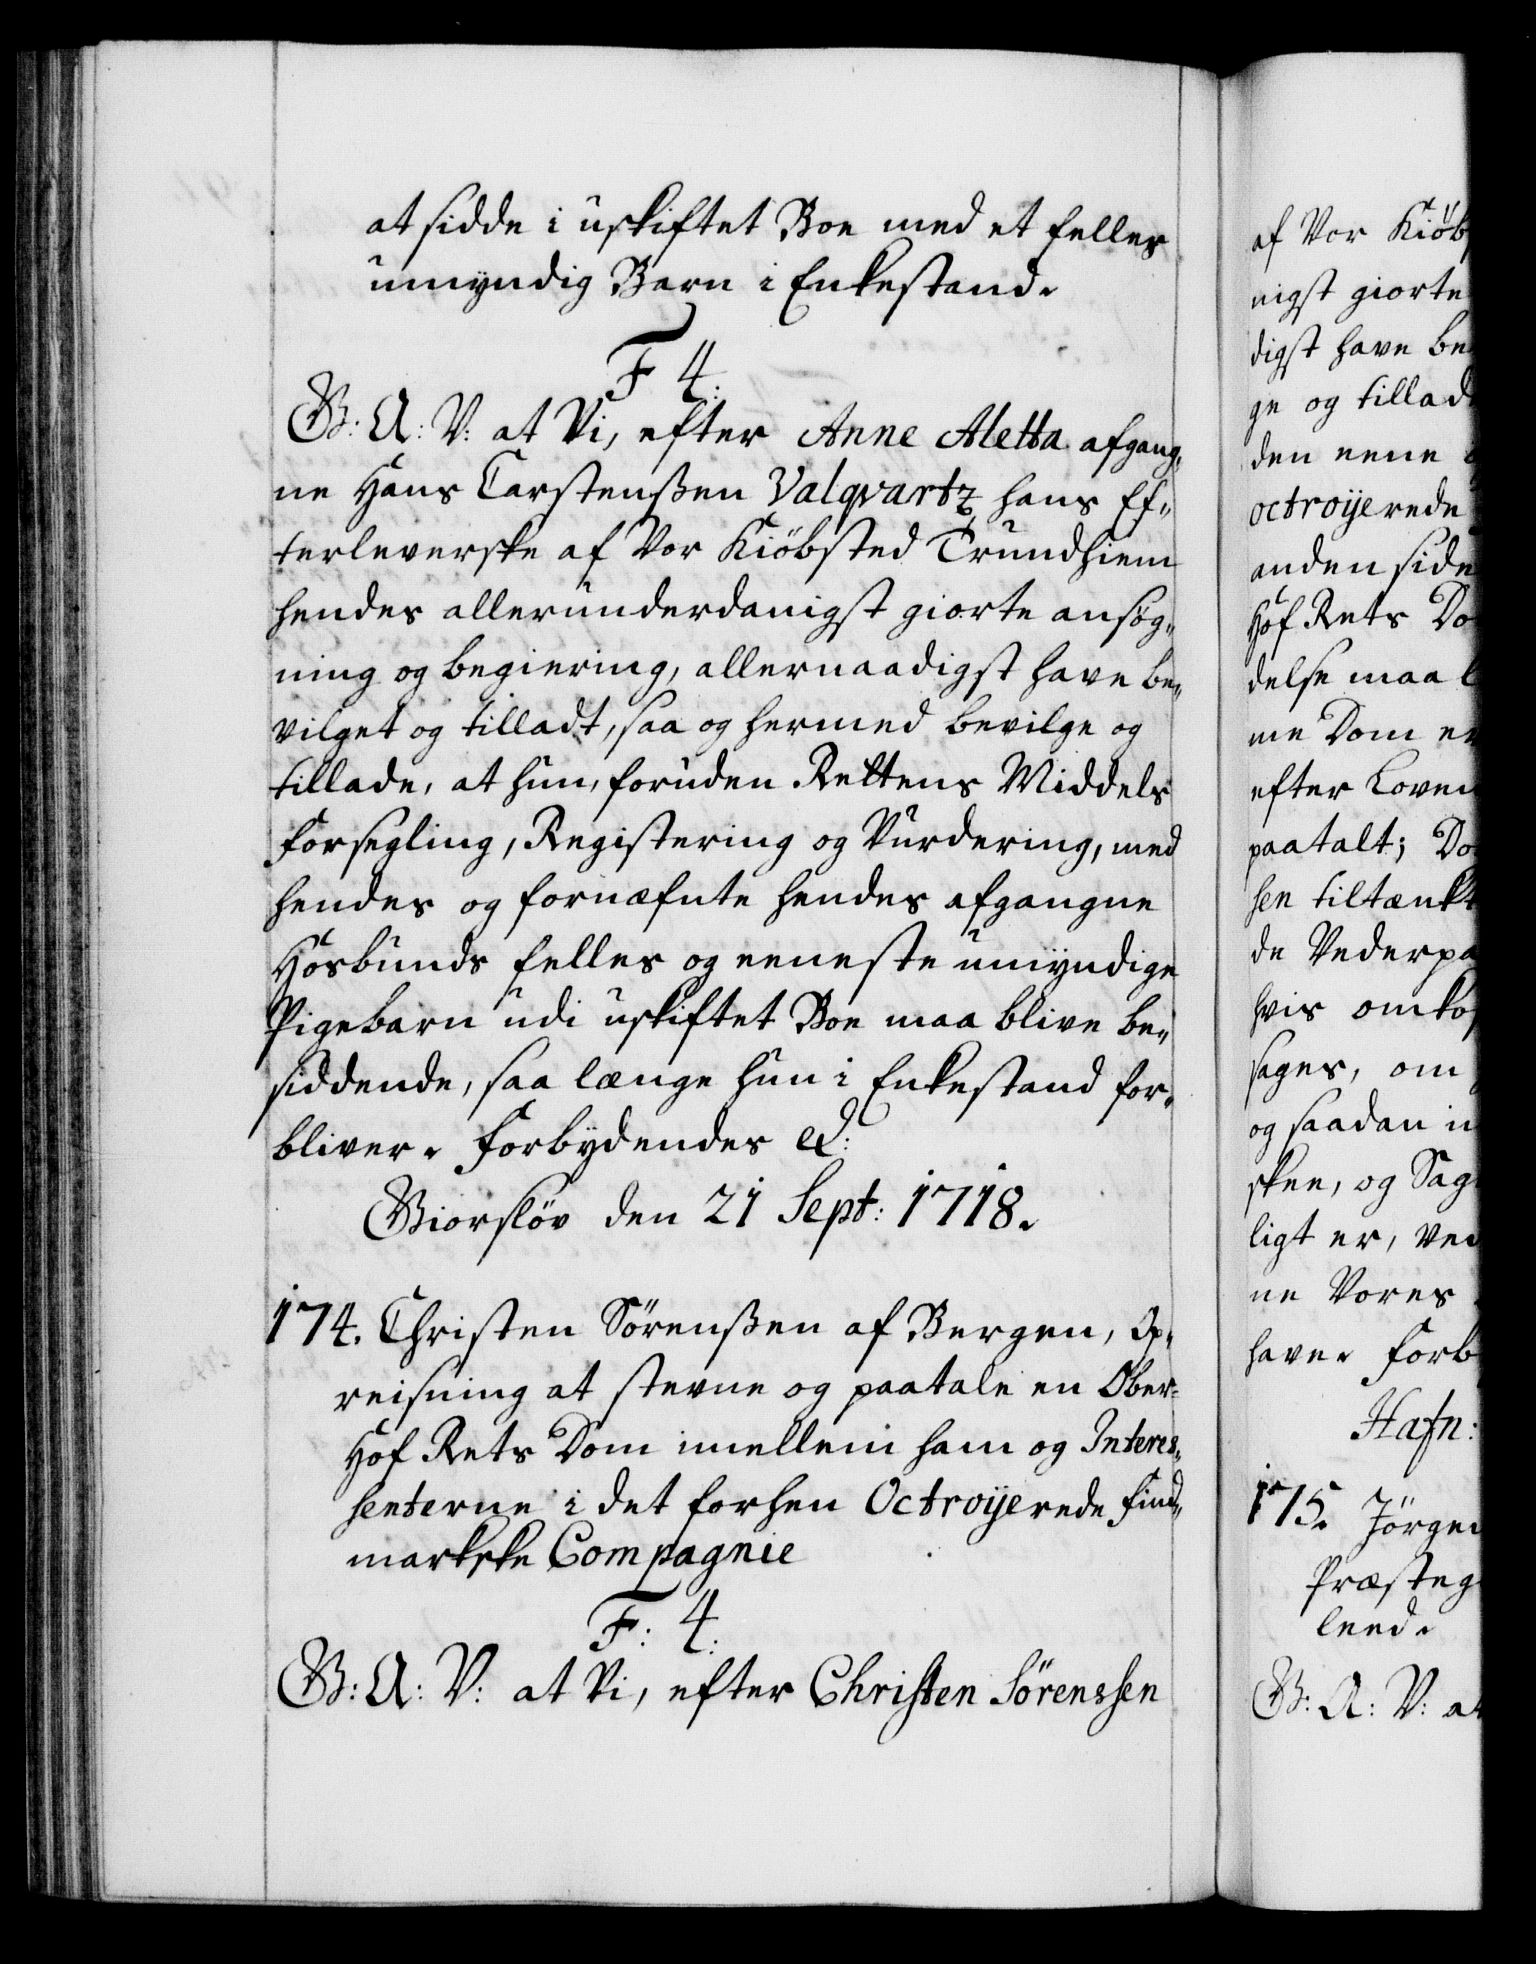 at sidde i uskiftet Boe med et felles
umyndig Barn i Enkestand.
F 4:
G: A: V: at Vi, efter Anne Aletta afgang„
ne Hans Carstenßen Valqvartz hans Ef„
terleverske af Vor Kiöbsted Trundhiem
hendes allerunderdanigst giorte ansøg„
ning og begiering, allernaadigst have be„
vilget og tilladt, saa og hermed bevilge og
tillade, at hun, foruden Rettens Middels
Forsegling, Registering og Vurdering, med
hendes og fornæfnte hendes afgangne
Hosbunds felles og eeneste umyndige
Pigebarn udi uskiftet Boe maa blive be„
siddende, saa længe hun i Enkestand for„
bliver. Forbydendes &:
Giorsløv den 21 Sept: 1718.
174. Christen Sörenßen af Bergen, Op„
reisning at stevne og paatale en Ober„
Hof Rets Dom imellem ham og Interes„
senterne i det forhen Octroijerede Find„
markske Compagnie
F: 4:
G: A: V: at Vi, efter Christen Sörenssen
af Vor Kiöb
nigst giorte
digst have be
ge og tillad
den eene
octroijerede
anden side
Hof Rets Do
delse maa
me Dom er
efter Loven
paatalt; Do
sen tiltænkt
de Vederpa
hvis omkos
sages, om
og saadan
skee, og Sag
ligt er, ved
ne Vores
have. Forb
Hafn:
175. Jörgen
Præsteg
leed.
G: A: V: at